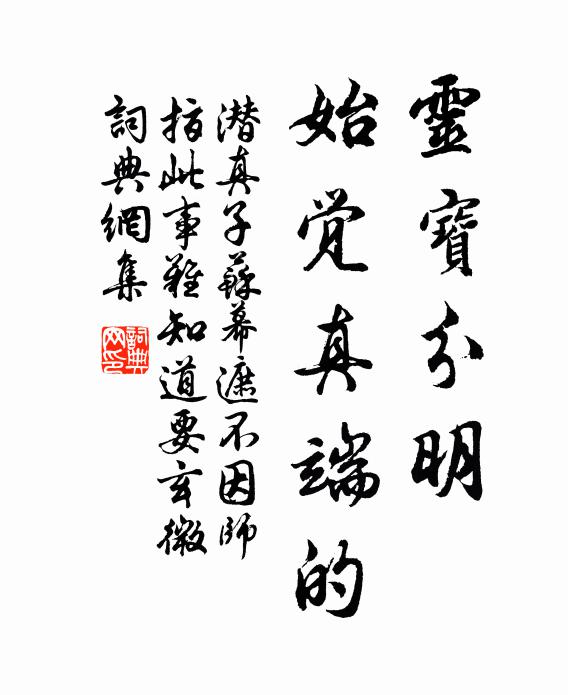 靈寶分明
始觉真端的
潜真子蘇幕遮不因師
指此事難知道要玄微
詞典網集
詞典网印